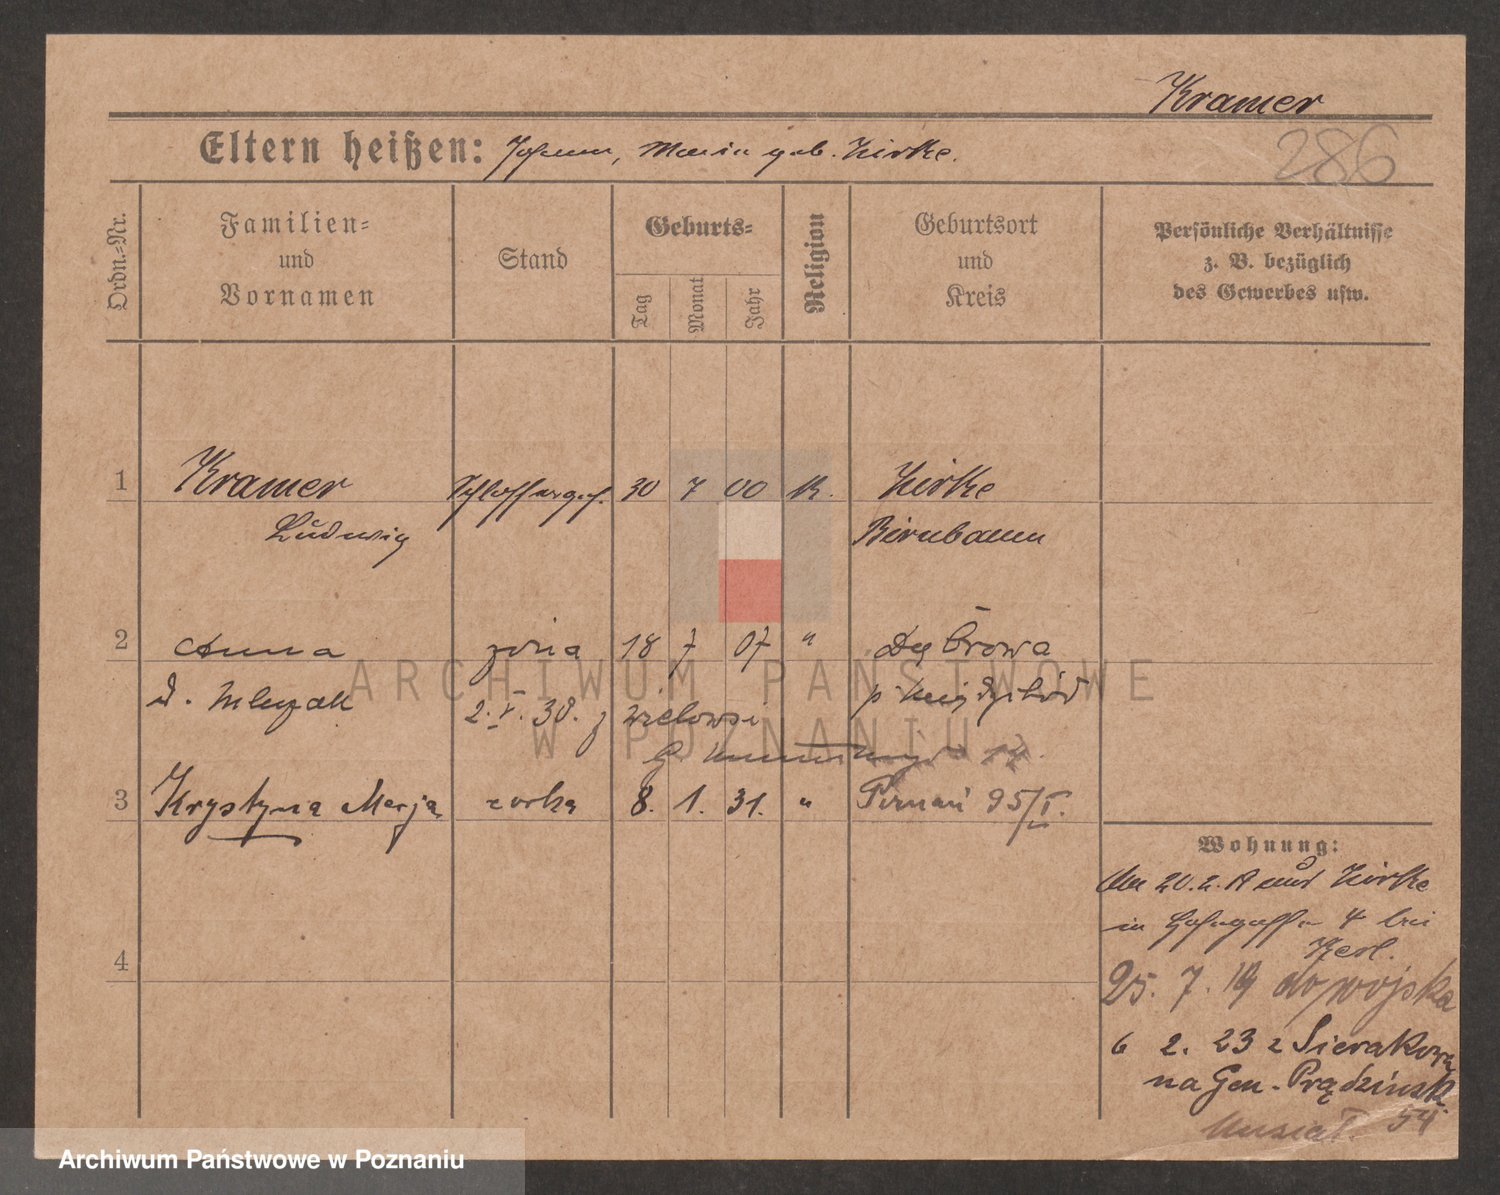 Kramer
286
Eltern heißen: Johann, Maria geb. Zirke.
Ordn.-Nr.
Familien-
und
Vornamen
Stand
Geburts-
Tag
Monat
Jahr
Religion
Geburtsort
und
Kreis
Persönliche Verhältnisse
z. B. bezüglich
des Gewerbes usw.
1 Kramer Schlosserges. 30 7 00 K. Zirke
Ludwig Birnbaum
2 Anna żona 18 7 07 " Dąbrowa
d. Mleczak 2. V. 30. z
3 Krystyna Marja córka 8. 1. 31. " Poznań 95/I.
4
Wohnung:
20.2. 19 aus Zirke
in 4 bei
25. 7. 19 do wojska
6 2. 23 z Sierakowa
na Gen. Prądzińsk.
54
ARCHIWUM PAŃSTWOWE
W POZNANIU
Archiwum Państwowe w Poznaniu